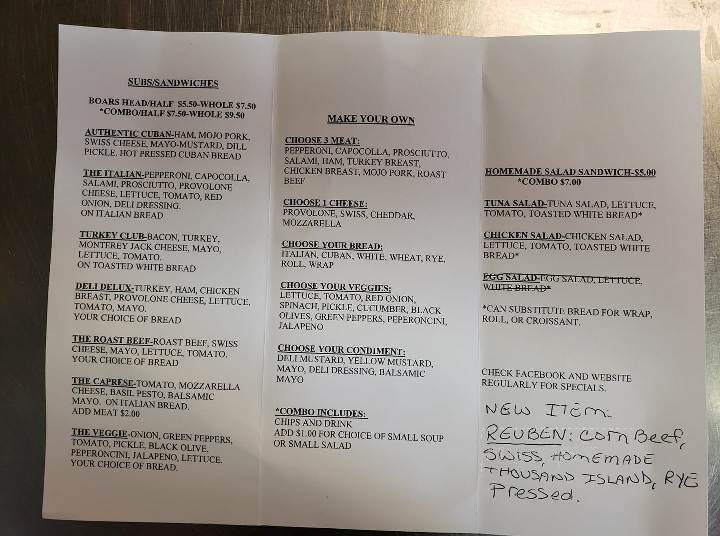 SUBS/SANDWICHES
BOARS HEAD/HALF $5.50-WHOLE $7.50
*COMBO/HALF $7.50-WHOLE $9.50
AUTHENTIC CUBAN-HAM, MOJO PORK,
SWISS CHEESE, MAYO-MUSTARD, DILL
PICKLE. HOT PRESSED CUBAN BREAD
THE ITALIAN-PEPPERONI, CAPOCOLLA,
SALAMI, PROSCIUTTO, PROVOLONE
CHEESE, LETTUCE, TOMATO, RED
ONION, DELI DRESSING.
ON ITALIAN BREAD
TURKEY CLUB-BACON, TURKEY,
MONTEREY JACK CHEESE, MAYO,
LETTUCE, TOMATO.
ON TOASTED WHITE BREAD
DELI DELUX-TURKEY, HAM, CHICKEN
BREAST, PROVOLONE CHEESE, LETTUCE,
TOMATO, MAYO.
YOUR CHOICE OF BREAD
THE ROAST BEEF-ROAST BEEF, SWISS
CHEESE, MAYO, LETTUCE, TOMATO.
YOUR CHOICE OF BREAD
THE CAPRESE-TOMATO, MOZZARELLA
CHEESE, BASIL PESTO, BALSAMIC
MAYO. ON ITALIAN BREAD.
ADD MEAT $2.00
THE VEGGIE-ONION, GREEN PEPPERS,
TOMATO, PICKLE, BLACK OLIVE,
PEPERONCINI, JALAPENO, LETTUCE.
YOUR CHOICE OF BREAD.
MAKE YOUR OWN
CHOOSE 3 MEAT:
PEPPERONI, CAPOCOLLA, PROSCIUTTO,
SALAMI, HAM, TURKEY BREAST,
CHICKEN BREAST, MOJO PORK, ROAST
BEEF
CHOOSE 1 CHEESE:
PROVOLONE, SWISS, CHEDDAR,
MOZZARELLA
CHOOSE YOUR BREAD:
ITALIAN, CUBAN, WHITE, WHEAT, RYE,
ROLL, WRAP
CHOOSE YOUR VEGGIES:
LETTUCE, TOMATO, RED ONION,
SPINACH, PICKLE, CUCUMBER, BLACK
OLIVES, GREEN PEPPERS, PEPERONCINI,
JALAPENO
CHOOSE YOUR CONDIMENT:
DELI MUSTARD, YELLOW MUSTARD,
MAYO, DELI DRESSING, BALSAMIC
MAYO
*COMBO INCLUDES:
CHIPS AND DRINK
ADD $1.00 FOR CHOICE OF SMALL SOUP
OR SMALL SALAD
HOMEMADE SALAD SANDWICH-$5.00
*COMBO $7.00
TUNA SALAD-TUNA SALAD, LETTUCE,
TOMATO, TOASTED WHITE BREAD*
CHICKEN SALAD-CHICKEN SALAD,
LETTUCE, TOMATO, TOASTED WHITE
BREAD*
EGG SALAD-EGG SALAD, LETTUCE,
WHITE BREAD*
*CAN SUBSTITUTE BREAD FOR WRAP,
ROLL, OR CROISSANT.
CHECK FACEBOOK AND WEBSITE
REGULARLY FOR SPECIALS.
NEW ITEM:
REUBEN: Corn Beef,
SWISS, HOMEMADE
THOUSAND ISLAND, RYE
Pressed.